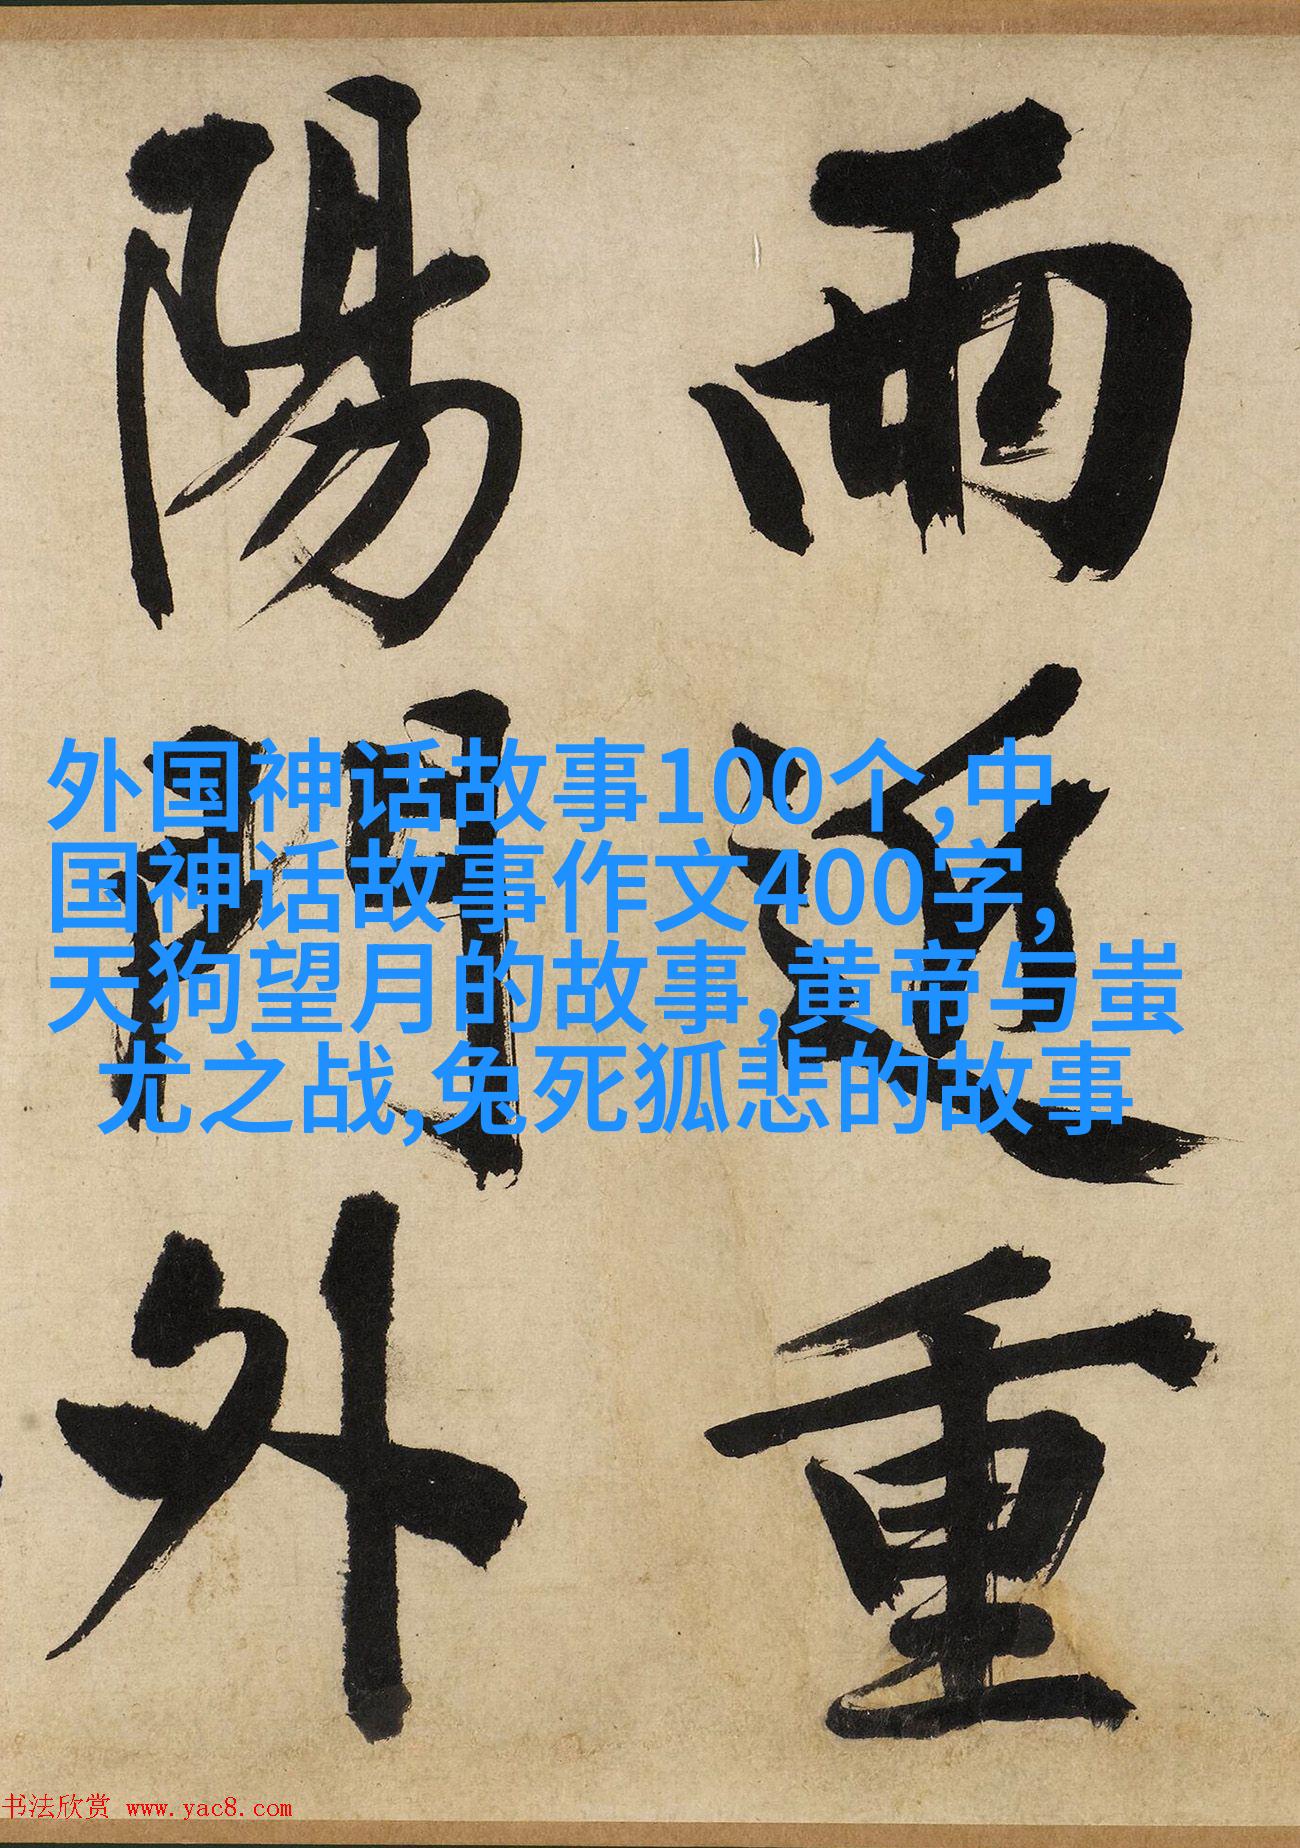 雨過重
陽門外
外国神话故事100个,中
国神话故事作文400字,
天狗望月的故事,黄帝与蚩
尤之战,兔死狐悲的故事
书法欣赏 www.yac8.com